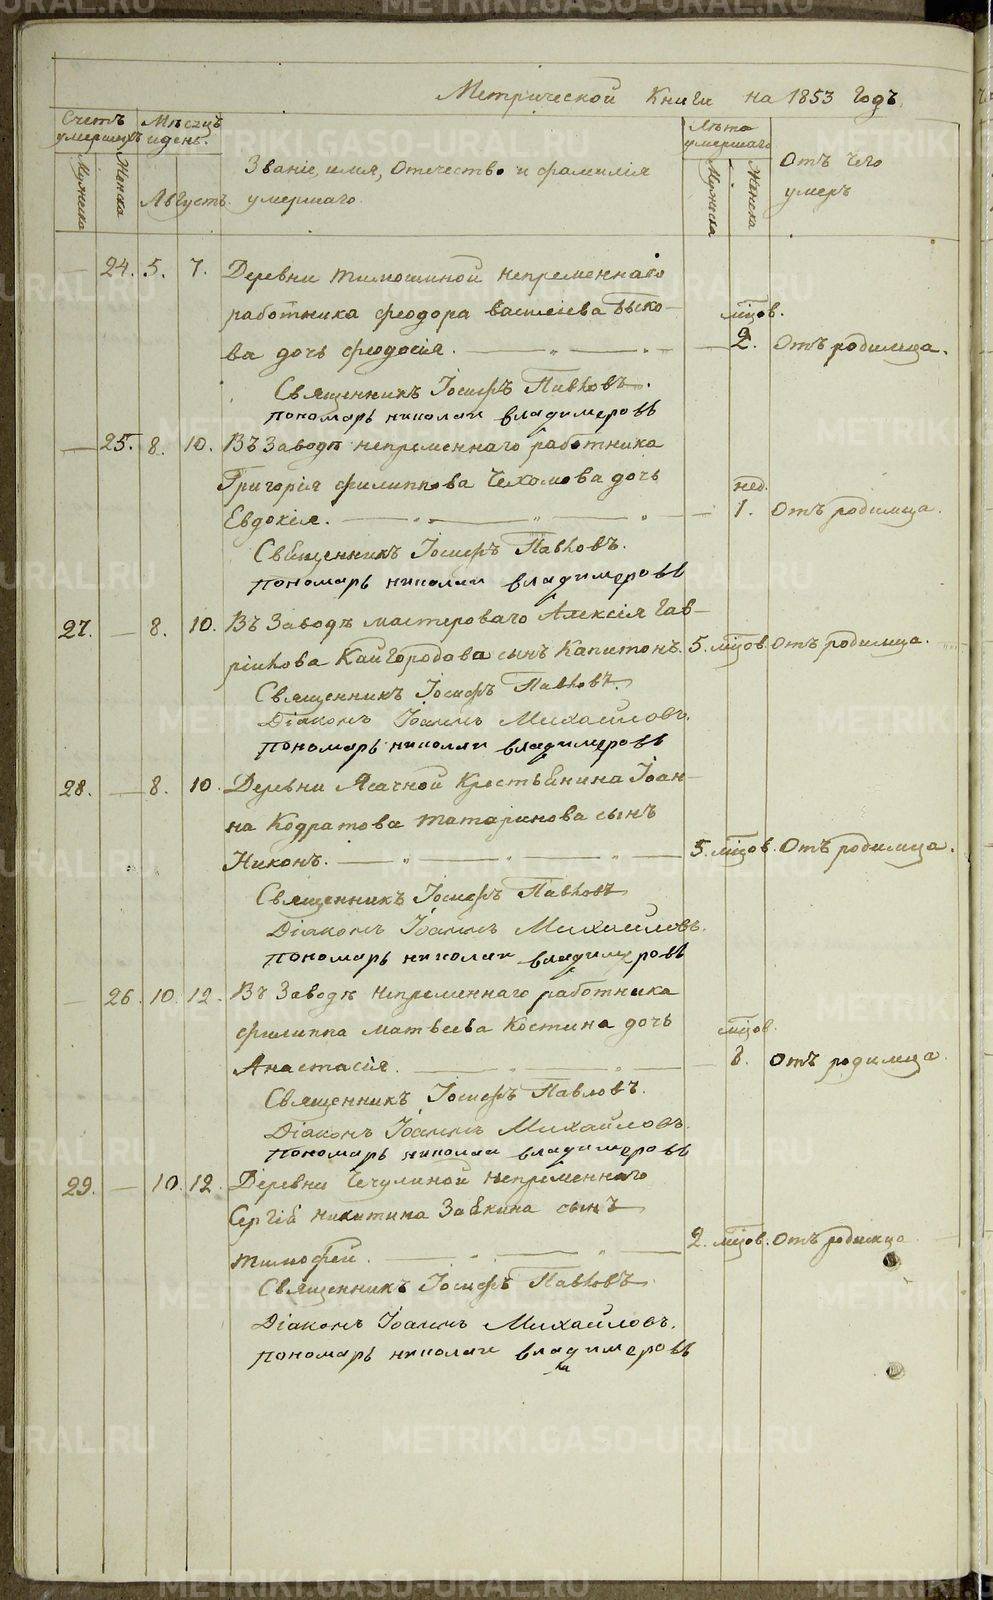 Метрической Книги на 1853 Годъ.
Счетъ умершихъ
Мѣсяцъ и день.
Мужеска
Женска
Августъ.
Званіе, имя, Отечество и фамилія
умершаго.
Лѣта умершаго
Мужеска
Женска
Отъ чего
умеръ
24. 5. 7. Деревни Тимошиной непременнаго
работника Феодора Васильева Быко-
мцов.
ва дочь Феодосія. 2. Отъ родимца.
Священникъ Іосифъ Павловъ.
пономарь николаи владимеровъ
25. 8. 10. Въ Заводѣ непременнаго работника
Григорія Филиппова Чехомова дочь
нед.
Евдокія. 1. Отъ родимца.
Священникъ Іосифъ Павловъ.
пономарь николаи владимеровъ
27. 8. 10. Въ Заводѣ мастероваго Алексія Гав-
рилова Кайгородова сынъ Капитонъ. 5. мцов. Отъ родимца.
Священникъ Іосифъ Павловъ.
Діаконъ Іоаннъ Михайловъ.
пономарь николаи владимеровъ
28. 8. 10. Деревни Ясачной Крестьянина Іоан-
на Кодратова Татаринова сынъ
Никонъ. 5. мцов. Отъ родимца.
Священникъ Іосифъ Павловъ
Діаконъ Іоаннъ Михайловъ.
пономарь николаи владимеровъ
26. 10. 12. Въ Заводѣ непременнаго работника
Филиппа Матвеева Костина дочь
мцов.
Анастасія. Отъ родимца.
Священникъ Іосифъ Павловъ.
Діаконъ Іоаннъ Михайловъ.
пономарь николаи владимеровъ
29. 10. 12. Деревни Чечулиной непременнаго
Сергія Никитина сынъ
Тимофей. 2. мцов. Отъ родимца
Священникъ Іосифъ Павловъ.
Діаконъ Іоаннъ Михайловъ.
пономарь николаи владимеровъ
METRIKI.GASO-URAL.RU